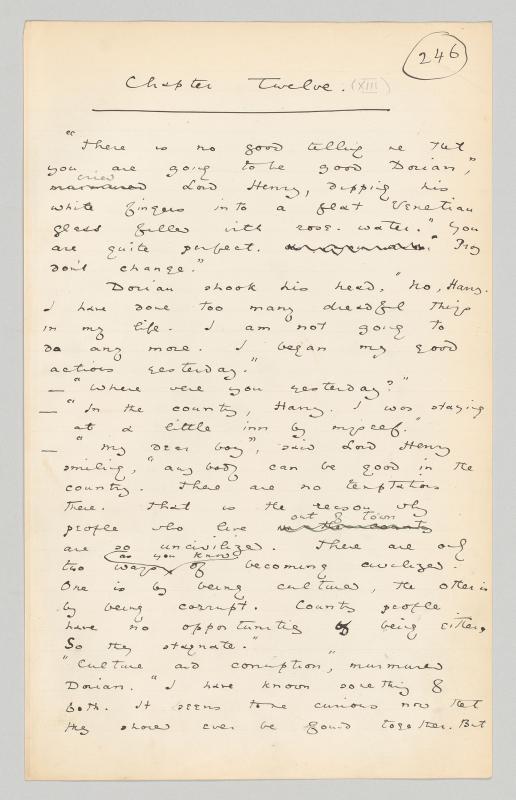 246
Chapter Twelve. (XIII)
"There is no good telling me that
you are going to be good Dorian,"
cried
murmured Lord Henry, dipping his
white fingers into a flat Venetian
glass filled with rose-water. "You
are quite perfect. Pray
don't change."
Dorian shook his head, "No, Harry.
I have done too many dreadful things
in my life. I am not going to
do any more. I began my good
actions yesterday."
— "Where were you yesterday?"
— "In the country, Harry. I was staying
at a little inn by myself."
— "My dear boy", said Lord Henry
smiling, "any body can be good in the
country. There are no temptations
there. That is the reason why
out of town
people who live in the country
are so uncivilized. There are only
as you know
two ways, of becoming civilized.
One is by being cultured, the other is
by being corrupt. Country people
have no opportunities of being either,
So they stagnate."
"Culture and corruption," murmured
Dorian. "I have known something of
both. It seems to me curious now that
they should ever be found together. But